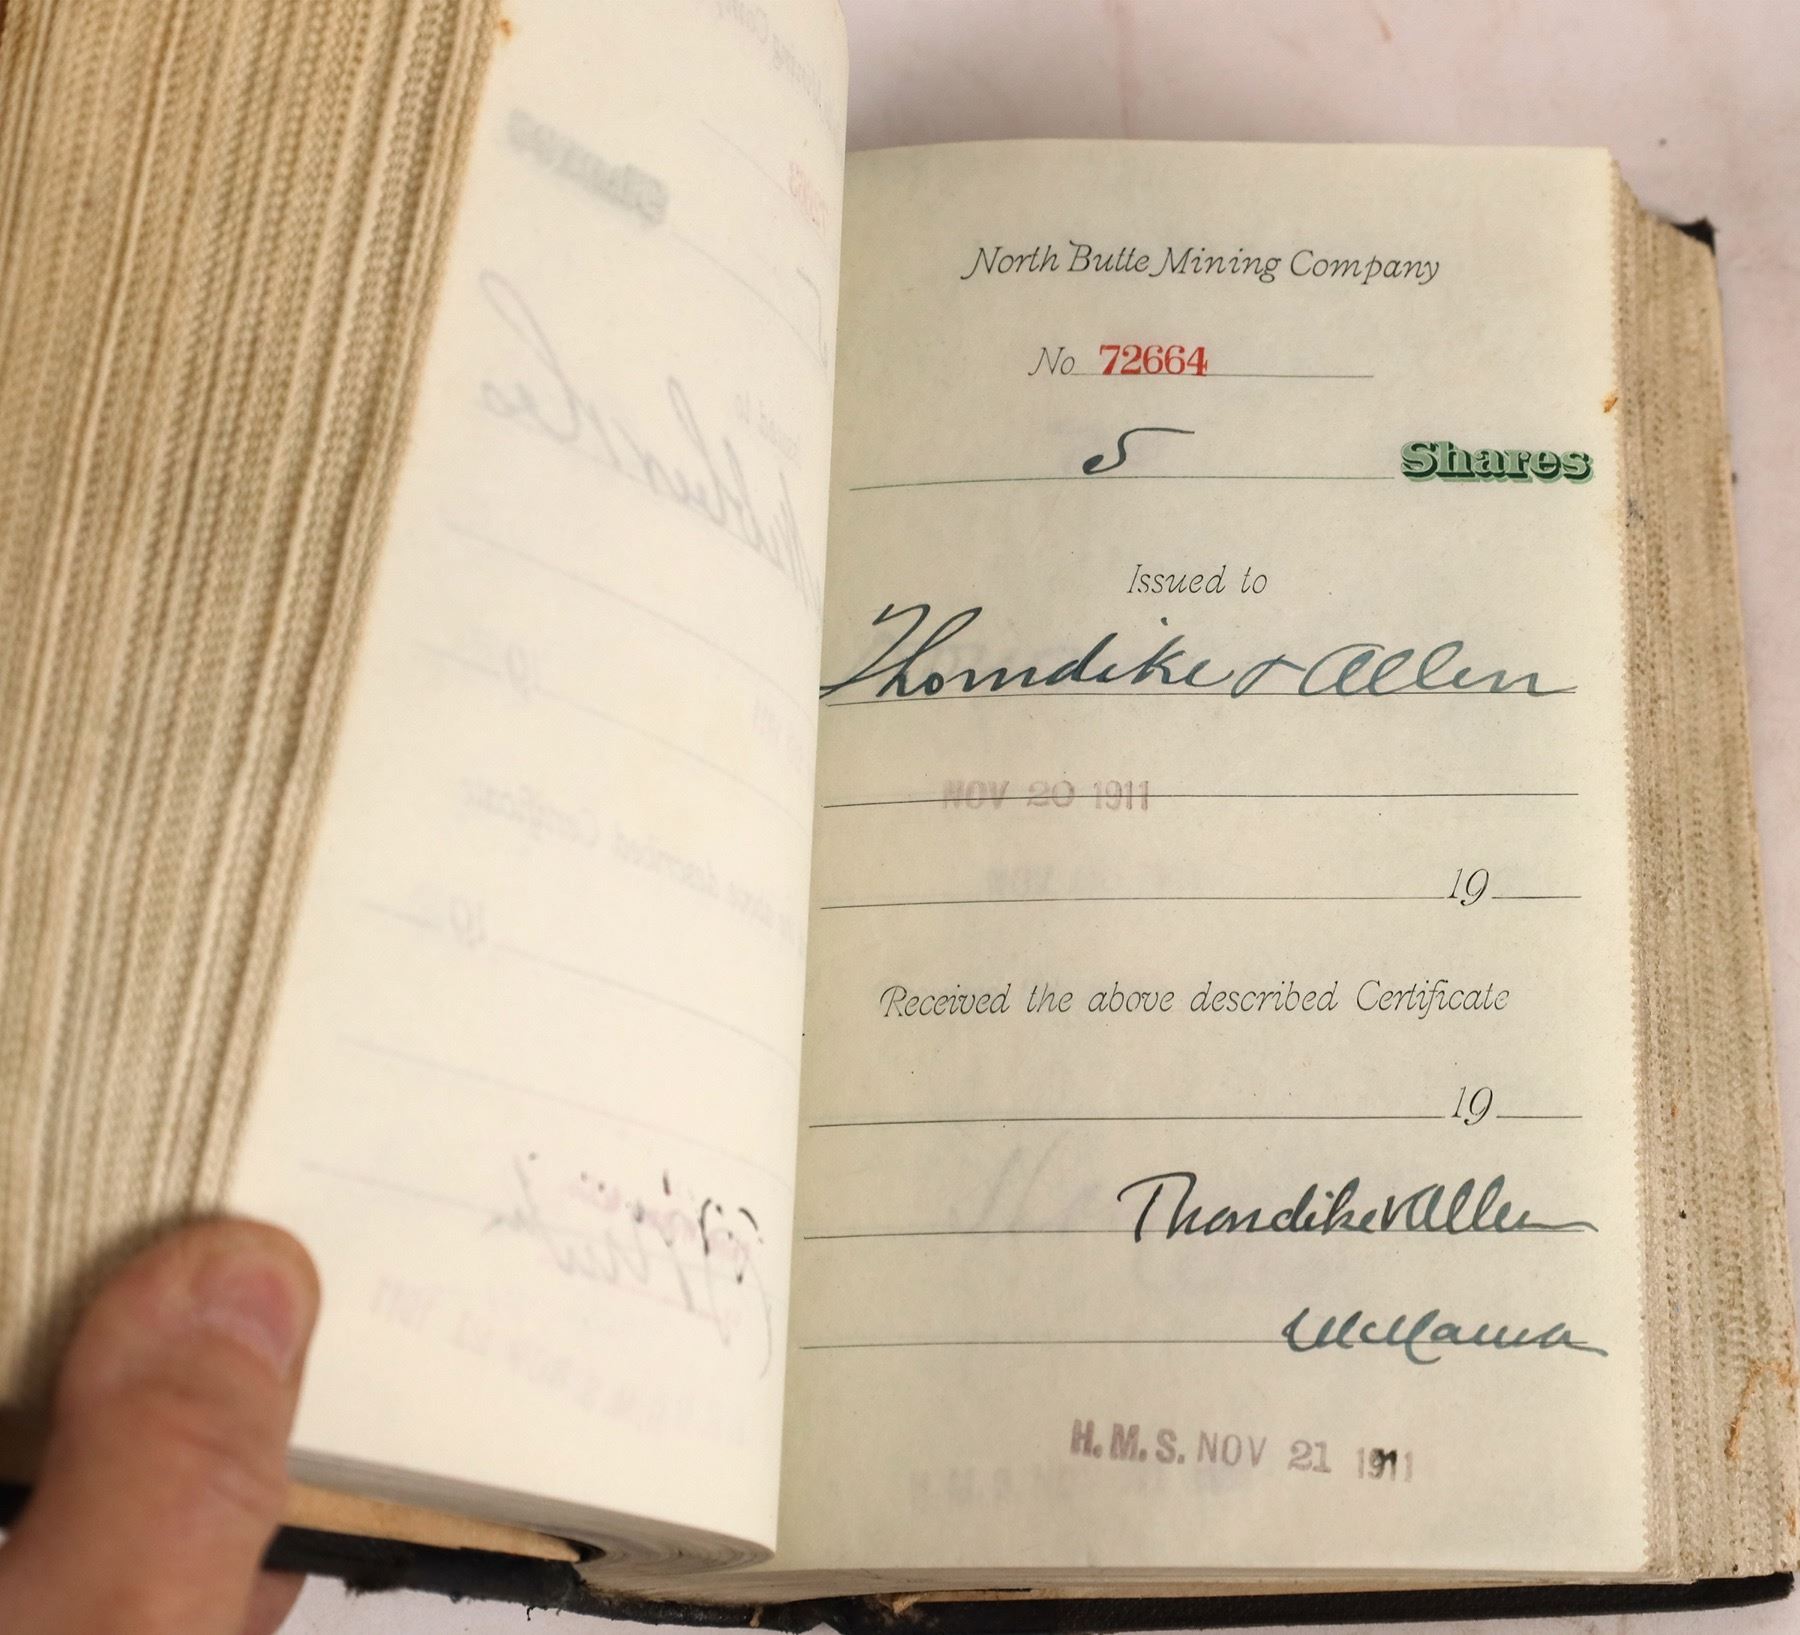 North Butte Mining Company
No 72664
5 Shares
Issued to
Thorndike & Allen
NOV 20 1911
19
Received the above described Certificate
19
Thorndike & Allen
H.M.S. NOV 21 1911